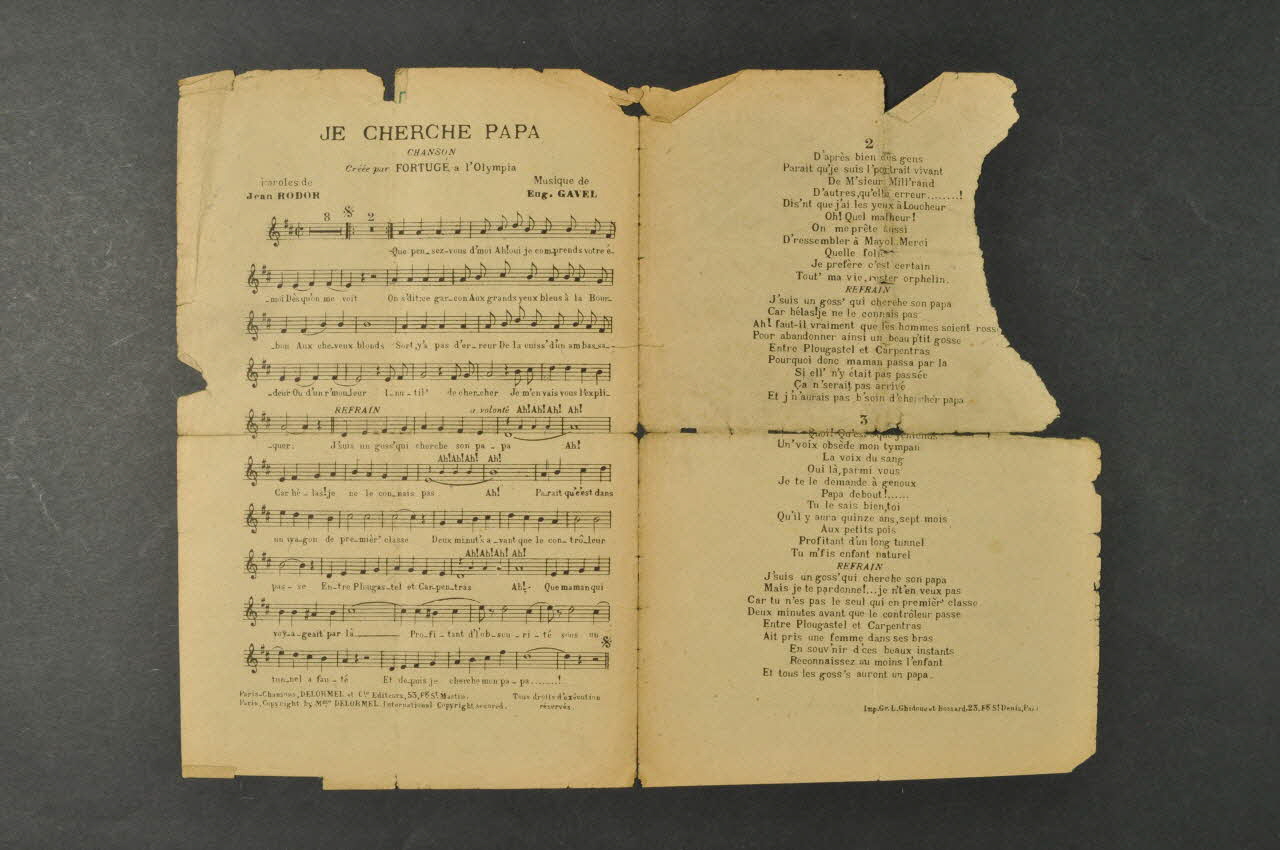 JE CHERCHE PAPA
CHANSON
Créée par FORTUGÉ a l'Olympia
Paroles de
Jean RODOR
Musique de
Eug. GAVEL
8 2
Que pen_sez-vous d'moi Ah! oui je com_prends votre é_
_moi Dès qu'on me voit On s'dit: ce gar_con Aux grands yeux bleus à la Bour_
_bon Aux che_veux blonds Sort, y'a pas d'er_reur De la cuiss' d'un am bas_sa_
_deur Ou d'un r'mou_leur I_nu_til' de cher_cher Je m'en vais vous l'expli_
REFRAIN a volonté Ah! Ah! Ah! Ah!
_quer: J'suis un goss' qui cherche son pa_pa Ah!
Ah! Ah! Ah! Ah!
Car hé_las! je ne le con_nais pas Ah! Parait qu'c'est dans
un wa_gon de pre_mièr' classe Deux minut's a_vant que le con_trô_leur
Ah! Ah! Ah! Ah!
pas_se En_tre Plougas_tel et Car_pen_tras Ah!_ Que maman qui
voy_a_geait par là Pro_fi_tant d'l'obs_cu_ri_té sous un
tun_nel a fau_té Et de_puis je cherche mon pa_pa........!
Paris-Chansons, DELORMEL et Cie Editeurs, 53, Fg St Martin.
Paris, Copyright by Mme DELORMEL International Copyright secured.
Tous droits d'exécution
réservés.
2
D'après bien des gens
Parait qu'je suis l'portrait vivant
De M'sieur Mill'rand
D'autres, qu'elle erreur........!
Dis'nt que j'ai les yeux à Loucheur
Oh! Quel malheur!
On me prête aussi
D'ressembler à Mayol. Merci
Quelle folie
Je préfère c'est certain
Tout' ma vie, rester orphelin.
REFRAIN
J'suis un goss' qui cherche son papa
Car hélas! je ne le connais pas
Ah! faut-il vraiment que les hommes soient ross
Pour abandonner ainsi un beau p'tit gosse
Entre Plougastel et Carpentras
Pourquoi donc maman passa par la
Si ell' n'y était pas passée
Ça n'serait pas arrivé
Et j'n'aurais pas b'soin d'chercher papa
3
Quoi! Qu'est-c'que j'entends
Un' voix obsède mon tympan
La voix du sang
Oui là, parmi vous
Je te le demande à genoux
Papa debout!......
Tu le sais bien, toi
Qu'il y aura quinze ans, sept mois
Aux petits pois
Profitant d'un long tunnel
Tu m'fis enfant naturel
REFRAIN
J'suis un goss' qui cherche son papa
Mais je te pardonne!...je n't'en veux pas
Car tu n'es pas le seul qui en premièr' classe
Deux minutes avant que le contrôleur passe
Entre Plougastel et Carpentras
Ait pris une femme dans ses bras
En souv'nir d'ces beaux instants
Reconnaissez au moins l'enfant
Et tous les goss's auront un papa.
Imp. Gr. L. Ghidone et Bossard, 23, Fg St Denis, Paris